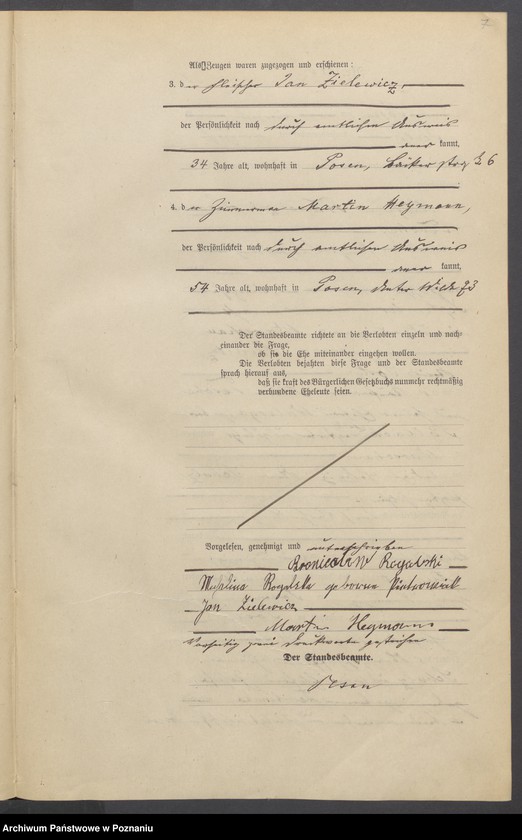 7
Als Zeugen waren zugezogen und erschienen:
3. der Fleischer Jan Zielewicz,
der Persönlichkeit nach durch amtlichen Ausweis
kannt,
34 Jahre alt, wohnhaft in Posen, Bäckerstraße 26
4. der Zimmermann Martin Heymann,
der Persönlichkeit nach durch amtlichen Ausweis
kannt,
54 Jahre alt, wohnhaft in Posen, Unter Wilda 73
Der Standesbeamte richtete an die Verlobten einzeln und nach-
einander die Frage,
ob sie die Ehe miteinander eingehen wollen.
Die Verlobten bejahten diese Frage und der Standesbeamte
sprach hierauf aus,
daß sie kraft des Bürgerlichen Gesetzbuchs nunmehr rechtmäßig
verbundene Eheleute seien.
Vorgelesen, genehmigt und unterschrieben
Rogalski
Rogalska geborene
Jan Zielewicz
Martin Heymann
Vorseitig zwei Druckworte gestrichen
Der Standesbeamte.
Archiwum Państwowe w Poznaniu